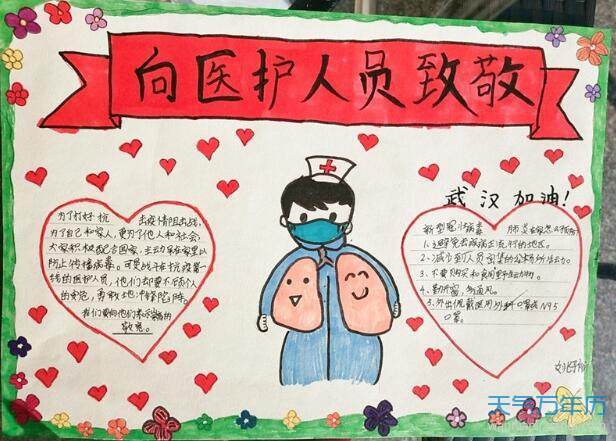 向医护人员致敬
武汉加油!
为了打好抗击疫情阻击战,
为了自己和家人,更为了他人和社会,
大家积极配合国家,主动呆在家里以
防止传播病毒。可是战斗在抗疫第一
线的医护人员,他们却要不顾个人
的安危,勇敢地冲锋陷阵。
我们要向他们表示崇高的
敬意。
新型冠状病毒 肺炎
1、避免去疾病正流行的地区。
2、减少到人员密集的公共场所活动
3、不要购买和食用野生动物。
4、勤开窗,多通风。
3、外出佩戴医用外科口罩或N95
口罩。
天气万年历